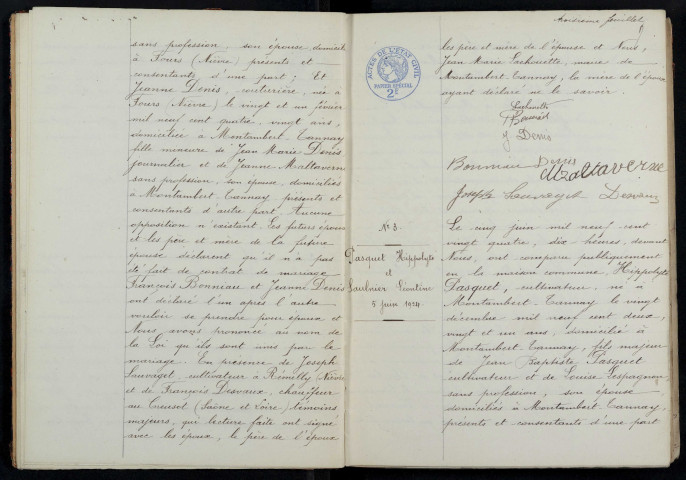 sans profession, son épouse, domiciliés
à Fours (Nièvre) présents et
consentants d'une part ; Et
Jeanne Denis, couturière, née à
Fours (Nièvre) le vingt et un février
mil neuf cent quatre, vingt ans,
domiciliée à Montambert-Tannay
fille mineure de Jean Marie Denis
journalier et de Jeanne Maltaverne
sans profession, son épouse, domiciliés
à Montambert-Tannay, présents et
consentants d'autre part. Aucune
opposition n'existant. Les futurs époux
et les père et mère de la future
épouse déclarent qu'il n'a pas
été fait de contrat de mariage
François Bonniau et Jeanne Denis
ont déclaré l'un après l'autre
vouloir se prendre pour époux et
Nous avons prononcé au nom de
la Loi qu'ils sont unis par le
mariage. En présence de Joseph
Sauvaget cultivateur à Rémilly (Nièvre)
et de François Devaux, chauffeur
au Creusot (Saône et Loire) témoins
majeurs, qui lecture faite ont signé
avec les époux, le père de l'époux
N° 3
Pasquet Hippolyte
et
Saulnier Léontine
5 Juin 1924
ACTES DE L'ÉTAT CIVIL
PAPIER SPÉCIAL
2F
feuillet
les père et mère de l'épouse et Nous,
Jean Marie Lachouette, maire de
Montambert-Tannay, la mère de l'époux
ayant déclaré ne le savoir.
Lachouette
J Denis
Bonniau Denis
Maltaverne
Joseph Sauvaget Devaux
Le cinq juin mil neuf cent
vingt quatre, dix heures, devant
Nous, ont comparu publiquement
en la maison commune, Hippolyte
Pasquet, cultivateur, né à
Montambert-Tannay le vingt
décembre mil neuf cent deux,
vingt et un ans, domicilié à
Montambert-Tannay, fils majeur
de Jean Baptiste Pasquet
cultivateur et de Louise Lespagnon
sans profession, son épouse,
domiciliés à Montambert-Tannay,
présents et consentants d'une part